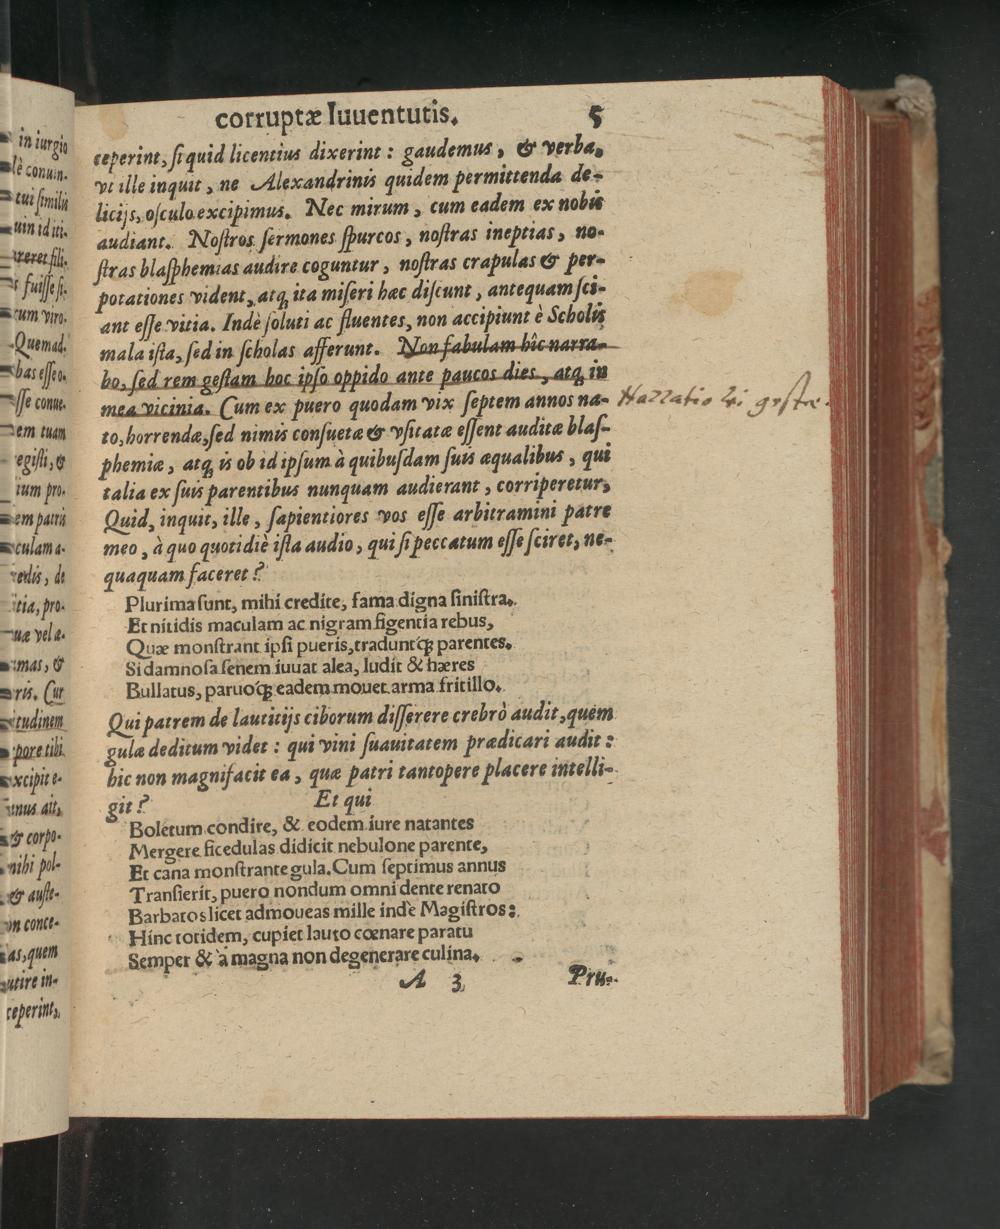 corruptæ Iuuentutis. 5
ceperint, ſi quid licentius dixerint : gaudemus, & verba,
vt ille inquit, ne Alexandrinis quidem permittenda de-
licijs, oſculo excipimus. Nec mirum, cum eadem ex nobis
audiant. Noſtros ſermones ſpurcos, noſtras ineptias, no-
ſtras blaſphemias audire coguntur, noſtras crapulas & per-
potationes vident, atq; ita miſeri hæc diſcunt, antequam ſci-
ant eſſe vitia. Indè ſoluti ac fluentes, non accipiunt è Scholis
mala iſta, ſed in ſcholas afferunt. Non fabulam hîc narra-
bo, ſed rem geſtam hoc ipſo oppido ante paucos dies, atq; in
mea vicinia. Cum ex puero quodam vix ſeptem annos na-
to, horrendæ, ſed nimis conſuetæ & vſitatæ eſſent auditæ blaſ-
phemiæ, atq; is ob id ipſum à quibuſdam ſuis æqualibus, qui
talia ex ſuis parentibus nunquam audierant, corriperetur,
Quid, inquit, ille, ſapientiores vos eſſe arbitramini patre
meo, à quo quotidiè iſta audio, qui ſi peccatum eſſe ſciret, ne-
quaquam faceret ?
Plurima ſunt, mihi credite, fama digna ſiniſtra,
Et nitidis maculam ac nigram figentia rebus,
Quæ monſtrant ipſi pueris, traduntq́; parentes.
Si damnoſa ſenem iuuat alea, ludit & hæres
Bullatus, paruoq́; eadem mouet arma fritillo.
Qui patrem de lautitijs ciborum diſſerere crebrò audit, quem
gulæ deditum videt : qui vini ſuauitatem prædicari audit :
hic non magnifacit ea, quæ patri tantopere placere intelli-
git ? Et qui
Boletum condire, & eodem iure natantes
Mergere ficedulas didicit nebulone parente,
Et cana monſtrante gula. Cum ſeptimus annus
Tranſierit, puero nondum omni dente renato
Barbatos licet admoueas mille indè Magiſtros :
Hinc totidem, cupiet lauto cœnare paratu
Semper & à magna non degenerare culina.
A 3 Pru-
Narratio rei gestæ.
in iurgio
tui ſimilis
uin id iti-
fuiſſe ſi-
cum viro-
Quemad-
bas eſſe o-
em tuam
egiſti, &
ium pro-
em patris
culam a-
tia, pro-
uæ vel æ-
mas, &
ris. Cur
itudinem
pore tibi
xcipit e-
& corpo-
nihi pol-
& auſte-
as, quem
utire in-
ceperint,